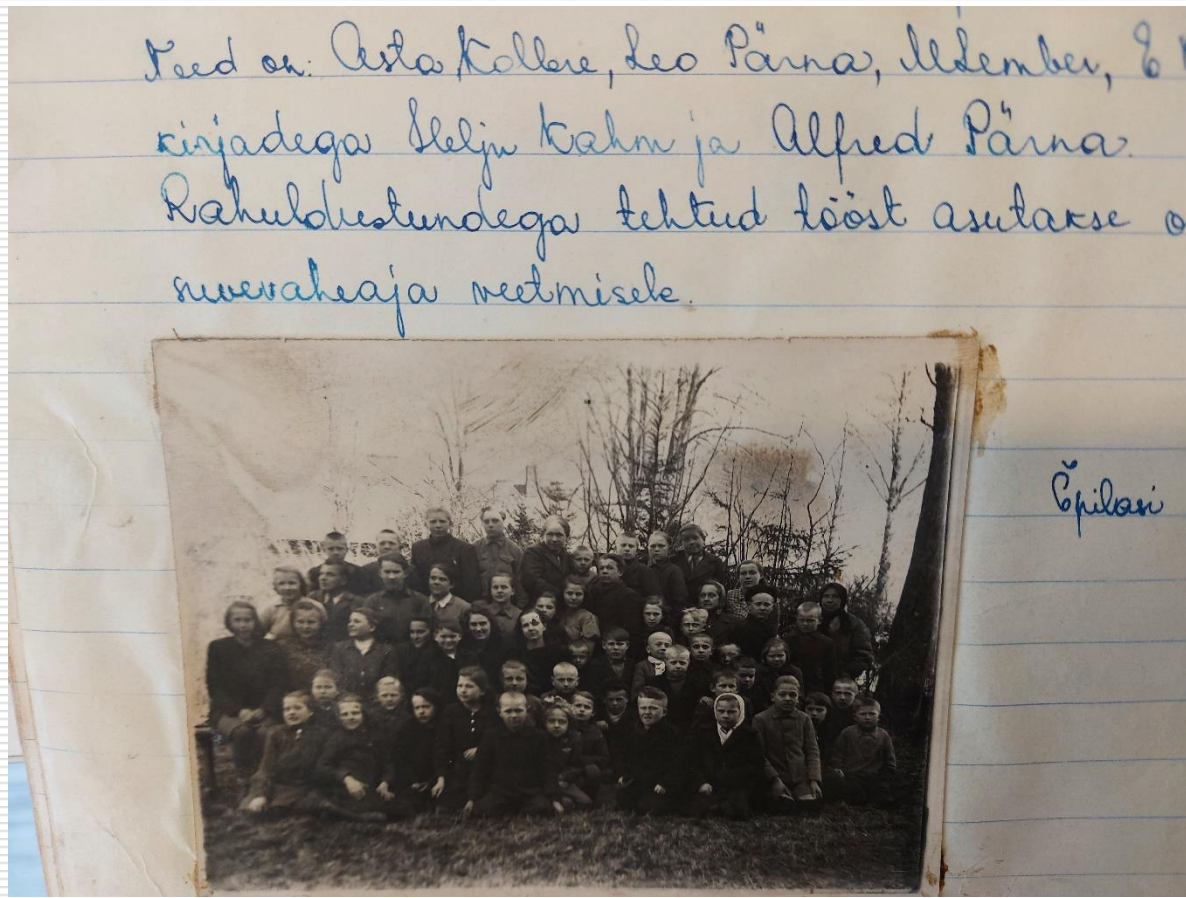 Need on: Asta Kollere, Leo Pärna, M Lember, E
kirjadega Helju Kahm ja Alfred Pärna.
Rahuldustundega tehtud tööst asutakse
suvevaheaja veetmisele.
Õpilasi